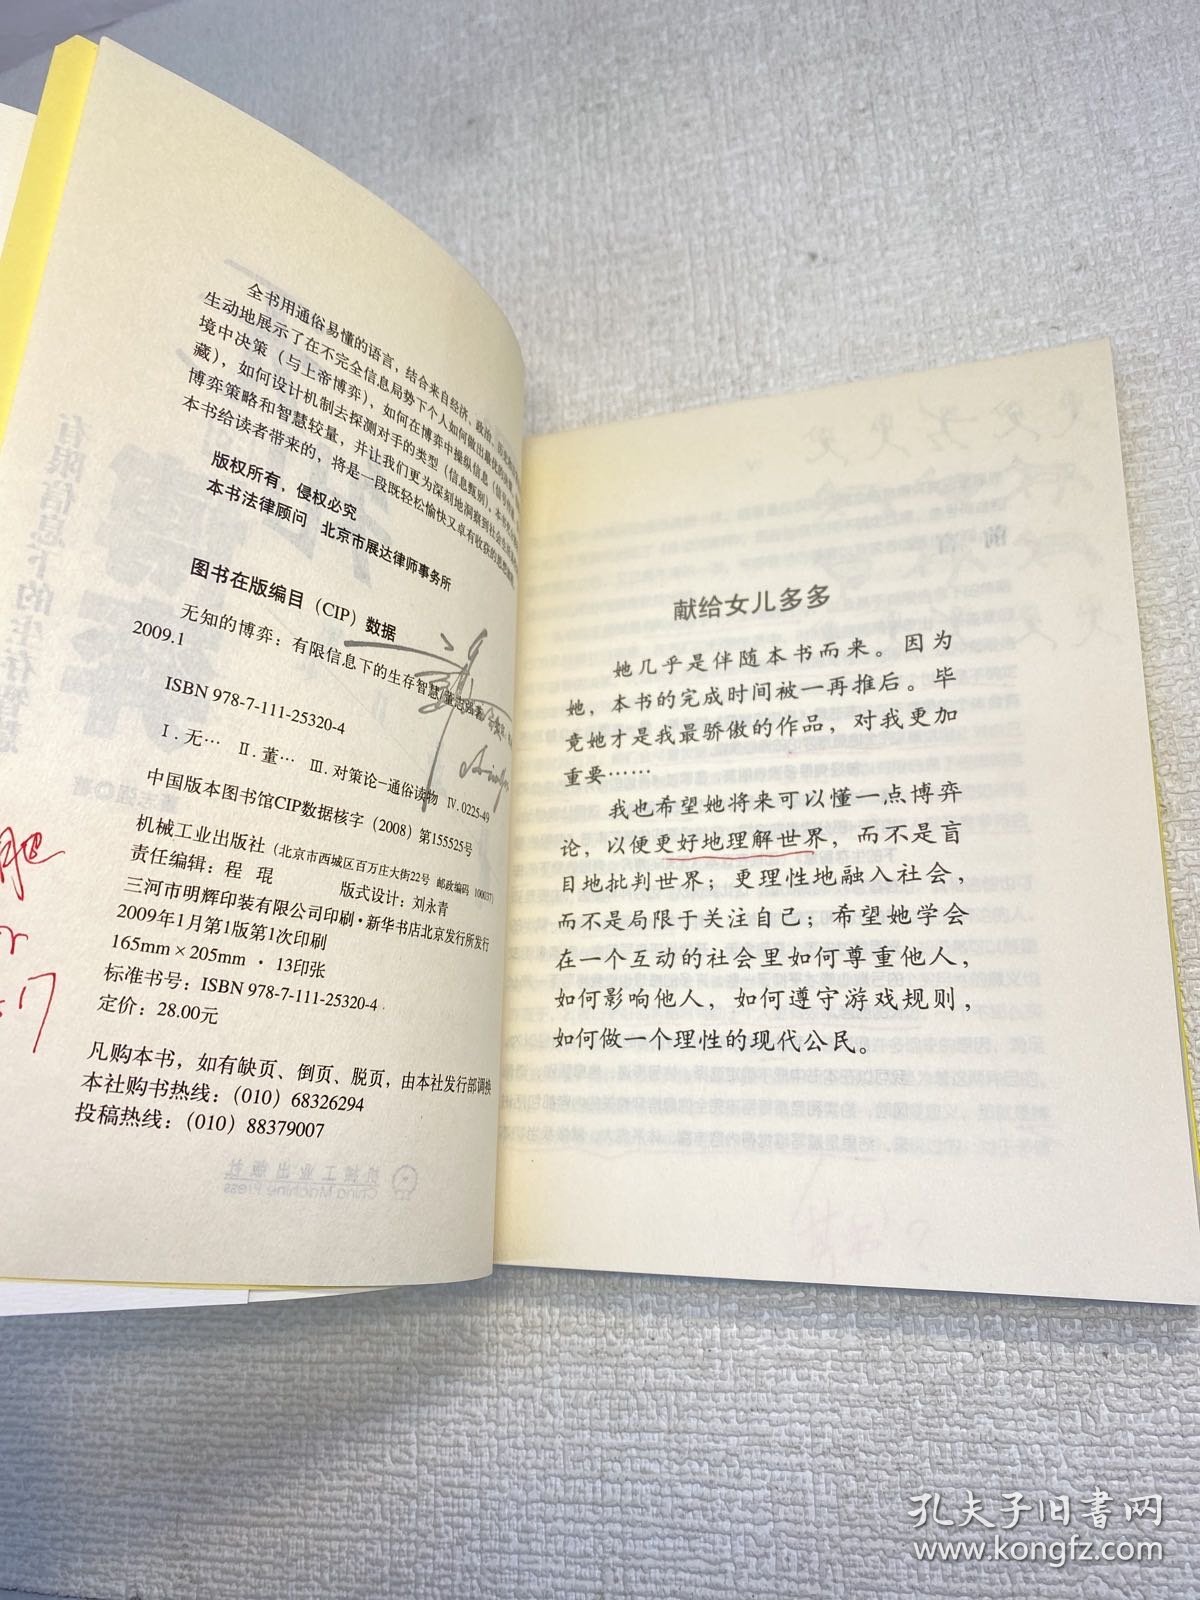 全书用通俗易懂的语言，结合来自经济、政治、历史
生动地展示了在不完全信息局势下个人如何做出最优的决策
境中决策（与上帝博弈），如何在博弈中操纵信息
藏），如何设计机制去探测对手的类型（信息甄别）。本书
博弈策略和智慧较量，并让我们更为深刻地洞察到社会
本书给读者带来的，将是一段既轻松愉快又卓有收获的思想
版权所有，侵权必究
本书法律顾问 北京市展达律师事务所
图书在版编目（CIP）数据
无知的博弈：有限信息下的生存智慧/董志强著
2009.1
ISBN 978-7-111-25320-4
Ⅰ.无… Ⅱ.董… Ⅲ.对策论-通俗读物 Ⅳ.O225-49
中国版本图书馆CIP数据核字（2008）第155525号
机械工业出版社（北京市西城区百万庄大街22号 邮政编码 100037）
责任编辑：程 琨 版式设计：刘永青
三河市明辉印装有限公司印刷·新华书店北京发行所发行
2009年1月第1版第1次印刷
165mm×205mm · 13印张
标准书号：ISBN 978-7-111-25320-4
定价：28.00元
凡购本书，如有缺页、倒页、脱页，由本社发行部调换
本社购书热线：（010）68326294
投稿热线：（010）88379007
献给女儿多多
她几乎是伴随本书而来。因为
她，本书的完成时间被一再推后。毕
竟她才是我最骄傲的作品，对我更加
重要……
我也希望她将来可以懂一点博弈
论，以便更好地理解世界，而不是盲
目地批判世界；更理性地融入社会，
而不是局限于关注自己；希望她学会
在一个互动的社会里如何尊重他人，
如何影响他人，如何遵守游戏规则，
如何做一个理性的现代公民。
孔夫子旧书网
www.kongfz.com